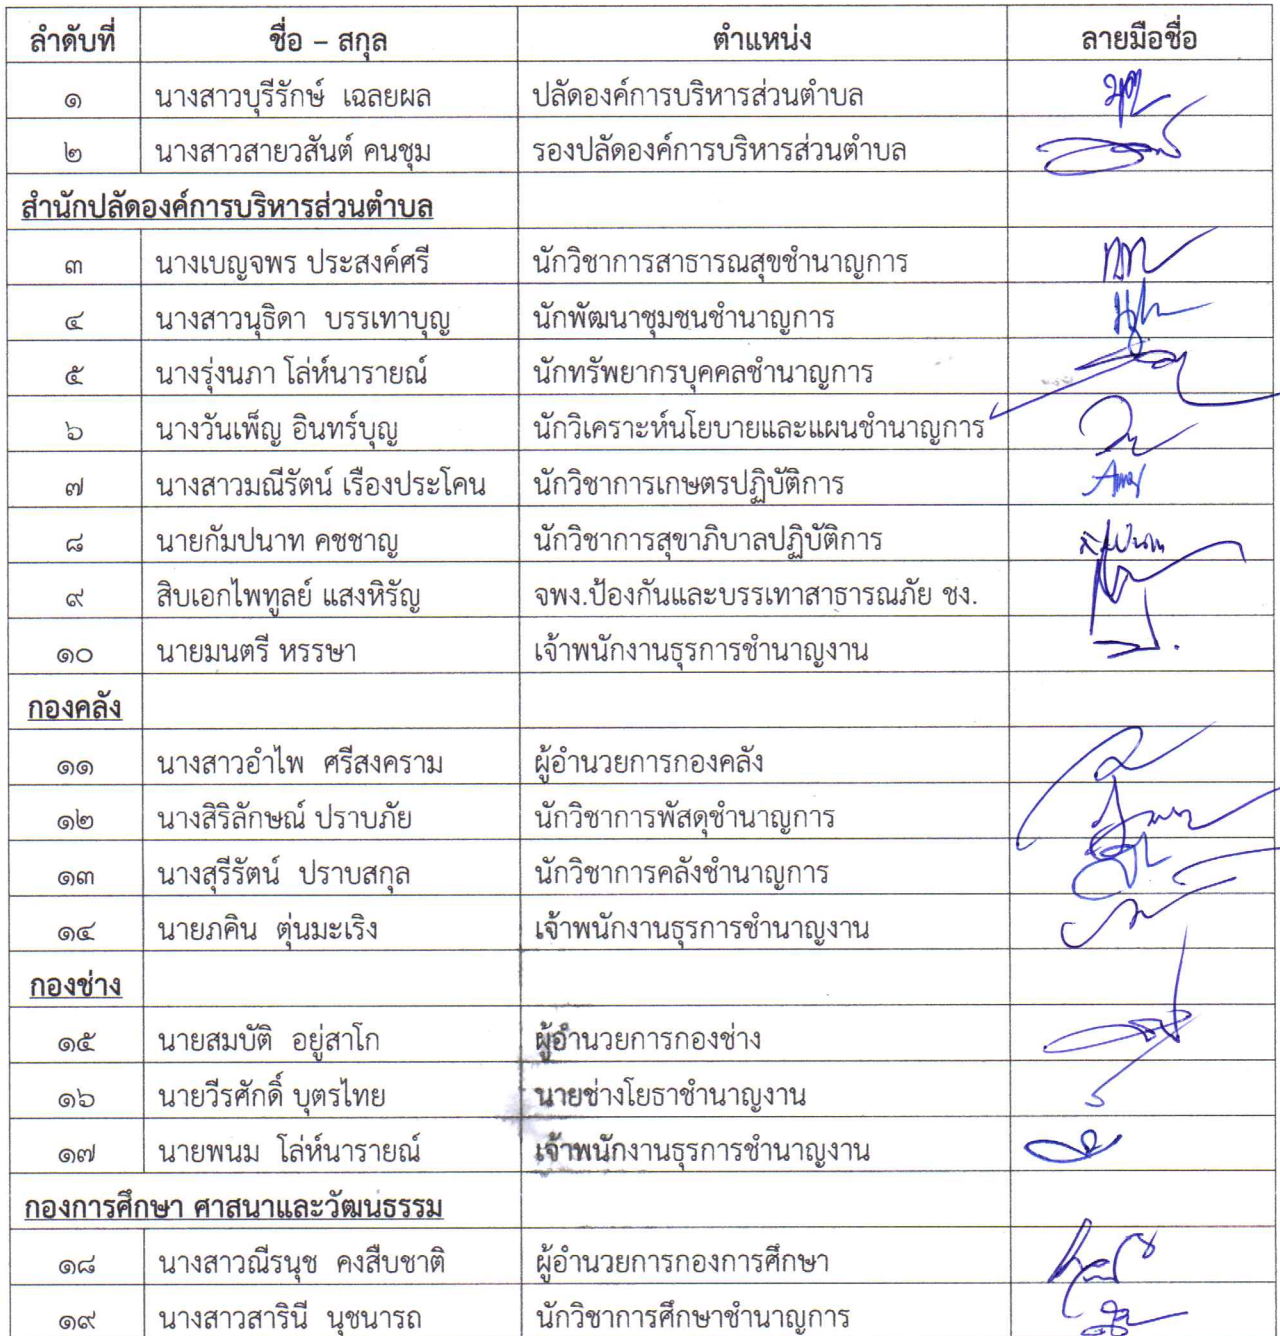 ลำดับที่ ชื่อ – สกุล ตำแหน่ง ลายมือชื่อ
๑ นางสาวบุรีรักษ์ เฉลยผล ปลัดองค์การบริหารส่วนตำบล
๒ นางสาวสายวสันต์ คนชุม รองปลัดองค์การบริหารส่วนตำบล
สำนักปลัดองค์การบริหารส่วนตำบล
๓ นางเบญจพร ประสงค์ศรี นักวิชาการสาธารณสุขชำนาญการ
๔ นางสาวนุธิดา บรรเทาบุญ นักพัฒนาชุมชนชำนาญการ
๕ นางรุ่งนภา โล่ห์นารายณ์ นักทรัพยากรบุคคลชำนาญการ
๖ นางวันเพ็ญ อินทร์บุญ นักวิเคราะห์นโยบายและแผนชำนาญการ
๗ นางสาวมณีรัตน์ เรืองประโคน นักวิชาการเกษตรปฏิบัติการ
๘ นายกัมปนาท คชชาญ นักวิชาการสุขาภิบาลปฏิบัติการ
๙ สิบเอกไพทูลย์ แสงหิรัญ จพง.ป้องกันและบรรเทาสาธารณภัย ชง.
๑๐ นายมนตรี หรรษา เจ้าพนักงานธุรการชำนาญงาน
กองคลัง
๑๑ นางสาวอำไพ ศรีสงคราม ผู้อำนวยการกองคลัง
๑๒ นางสิริลักษณ์ ปราบภัย นักวิชาการพัสดุชำนาญการ
๑๓ นางสุรีรัตน์ ปราบสกุล นักวิชาการคลังชำนาญการ
๑๔ นายภคิน ตุ่นมะเริง เจ้าพนักงานธุรการชำนาญงาน
กองช่าง
๑๕ นายสมบัติ อยู่สาโก ผู้อำนวยการกองช่าง
๑๖ นายวีรศักดิ์ บุตรไทย นายช่างโยธาชำนาญงาน
๑๗ นายพนม โล่ห์นารายณ์ เจ้าพนักงานธุรการชำนาญงาน
กองการศึกษา ศาสนาและวัฒนธรรม
๑๘ นางสาวณีรนุช คงสืบชาติ ผู้อำนวยการกองการศึกษา
๑๙ นางสาวสารินี นุชนารถ นักวิชาการศึกษาชำนาญการ